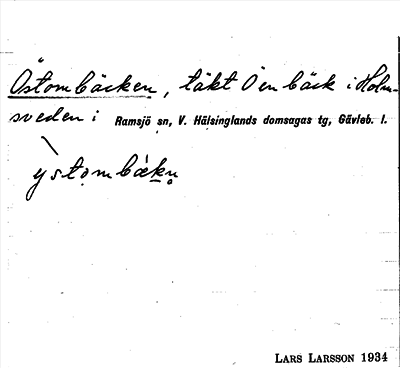 Östombäcken, täkt Ö en bäck i Holm-
sveden i Ramsjö sn, V. Hälsinglands domsagas tg, Gävleb. l.
ỳstombäkn̥
LARS LARSSON 1934